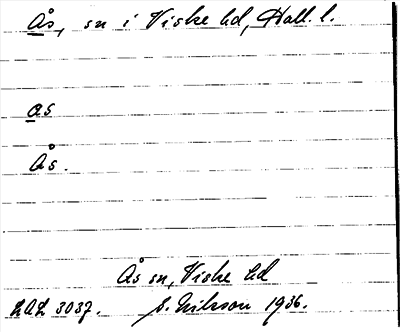 Ås, sn i Viske hd, Hall. l.
as
Ås.
Ås sn, Viske hd
LUL 3037. S. Nilsson 1936.